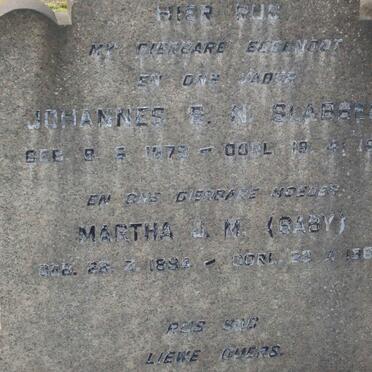 HIER RUS
MY DIERBARE EGGENOOT
EN ONS VADER
JOHANNES B. N. SLABBE
GEB. 9. 6. 1879 – OORL. 19.
EN ONS DIERBARE MOEDER
MARTHA J. M. (BABY)
GEB. 28. 7. 1894 – OORL. 29.
RUS SAG
LIEWE OUERS.